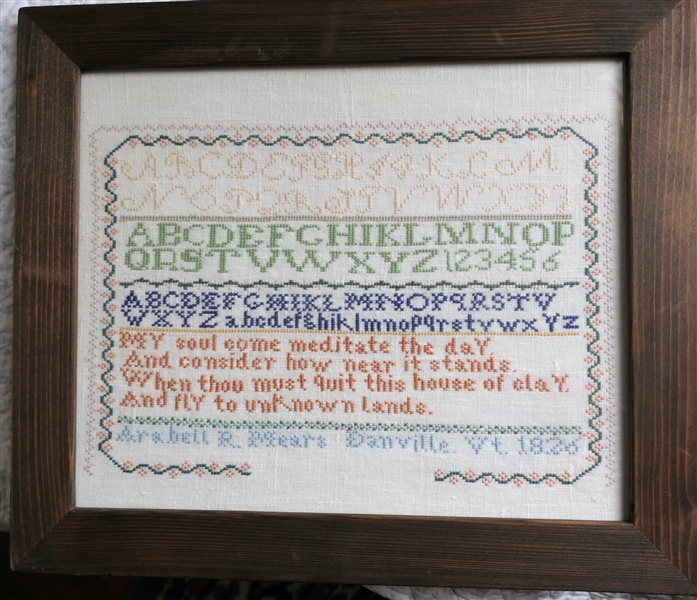 ABCDEFGHIKLM
NOPQRSTVWXYZ
ABCDEFGHIKLMNOP
QRSTVWXYZ123456
ABCDEFGHIKLMNOPqRSTV
WXYZ abcdefghiklmnopqrstvwxyz
MY soul come meditate the daY
And consider how near it stands.
When thou must quit this house of claY
And flY to unknown lands.
Arabell R. Mears Danville. Vt. 1826